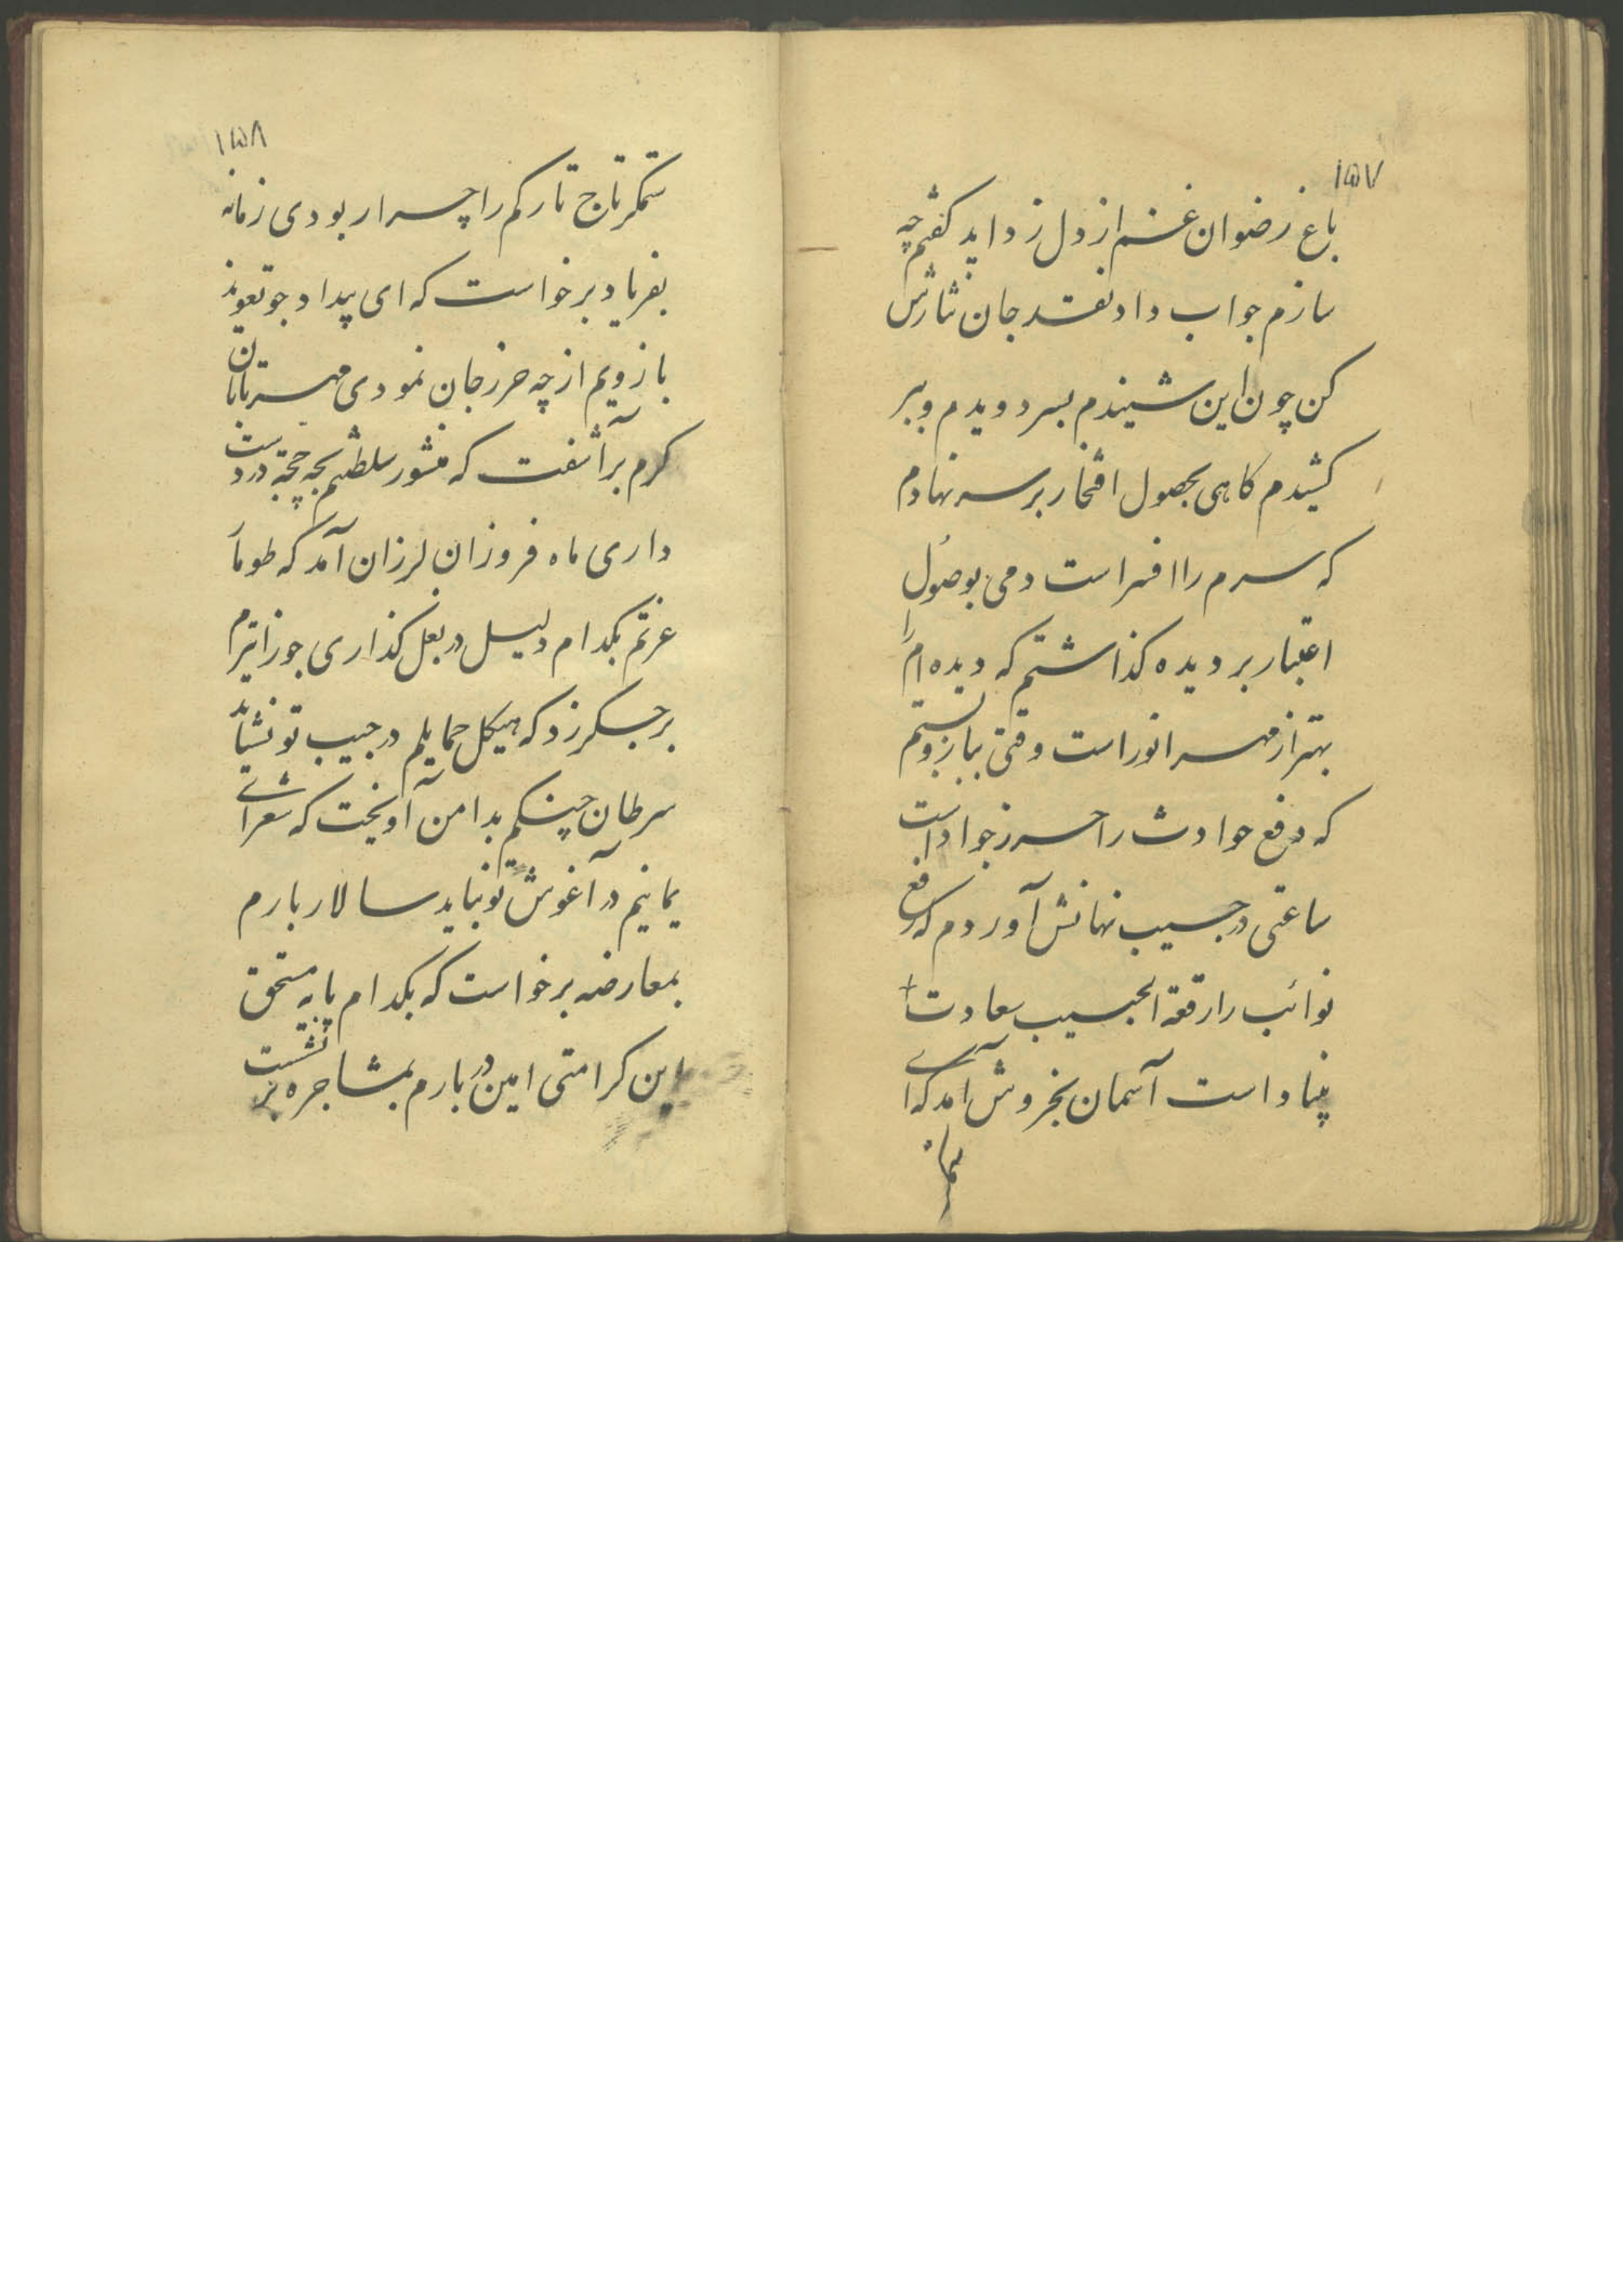 ۱۵۷
باغ رضوان غم از دل زداید گفتم چه
سازم جواب داد نقد جان نثارش
کن چون این شنیدم بسر دویدم و ببر
کشیدم کاهی بحصول افتخار بر سر نهادم
که سرم را افسر است دمی بوصول
اعتبار بر دیده گذاشتم که دیده ام را
بهتر از مهر انور است وقتی ببازو بستم
که دفع حوادث را حرز جواد است
ساعتی در جیب نهانش آوردم که رفع
نوائب را رقعة الجیب سعادت
بنیاد است آسمان بخروش آمد که ای
۱۵۸
ستمکر تاج تارکم را چرا ربودی زمانه
بفریاد برخواست که ای بیداد جو تعویذ
بازویم از چه حرز جان نمودی مهر تابان
کرم برآشفت که منشور سلطتم بچه حجة در دست
داری ماه فروزان لرزان آمد که طومار
عزتم بکدام دلیل در بغل گذاری جوزا تیرم
بر جگر زد که هیکل حمایلم در جیب تو نشاید
سرطان چنگم بدامن آویخت که شعرای
یمانیم در آغوش تو نباید سالار بارم
بمعارضه برخواست که بکدام پایه مستحق
این کرامتی امین دربارم بمشاجره برنشست